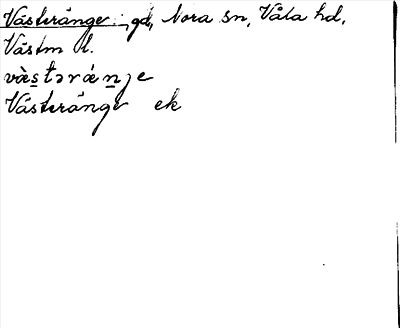 Västeränge gd, Nora sn, Våla hd,
Västm l.
vä̀s̱tərä́ṉje
Västeränge ek